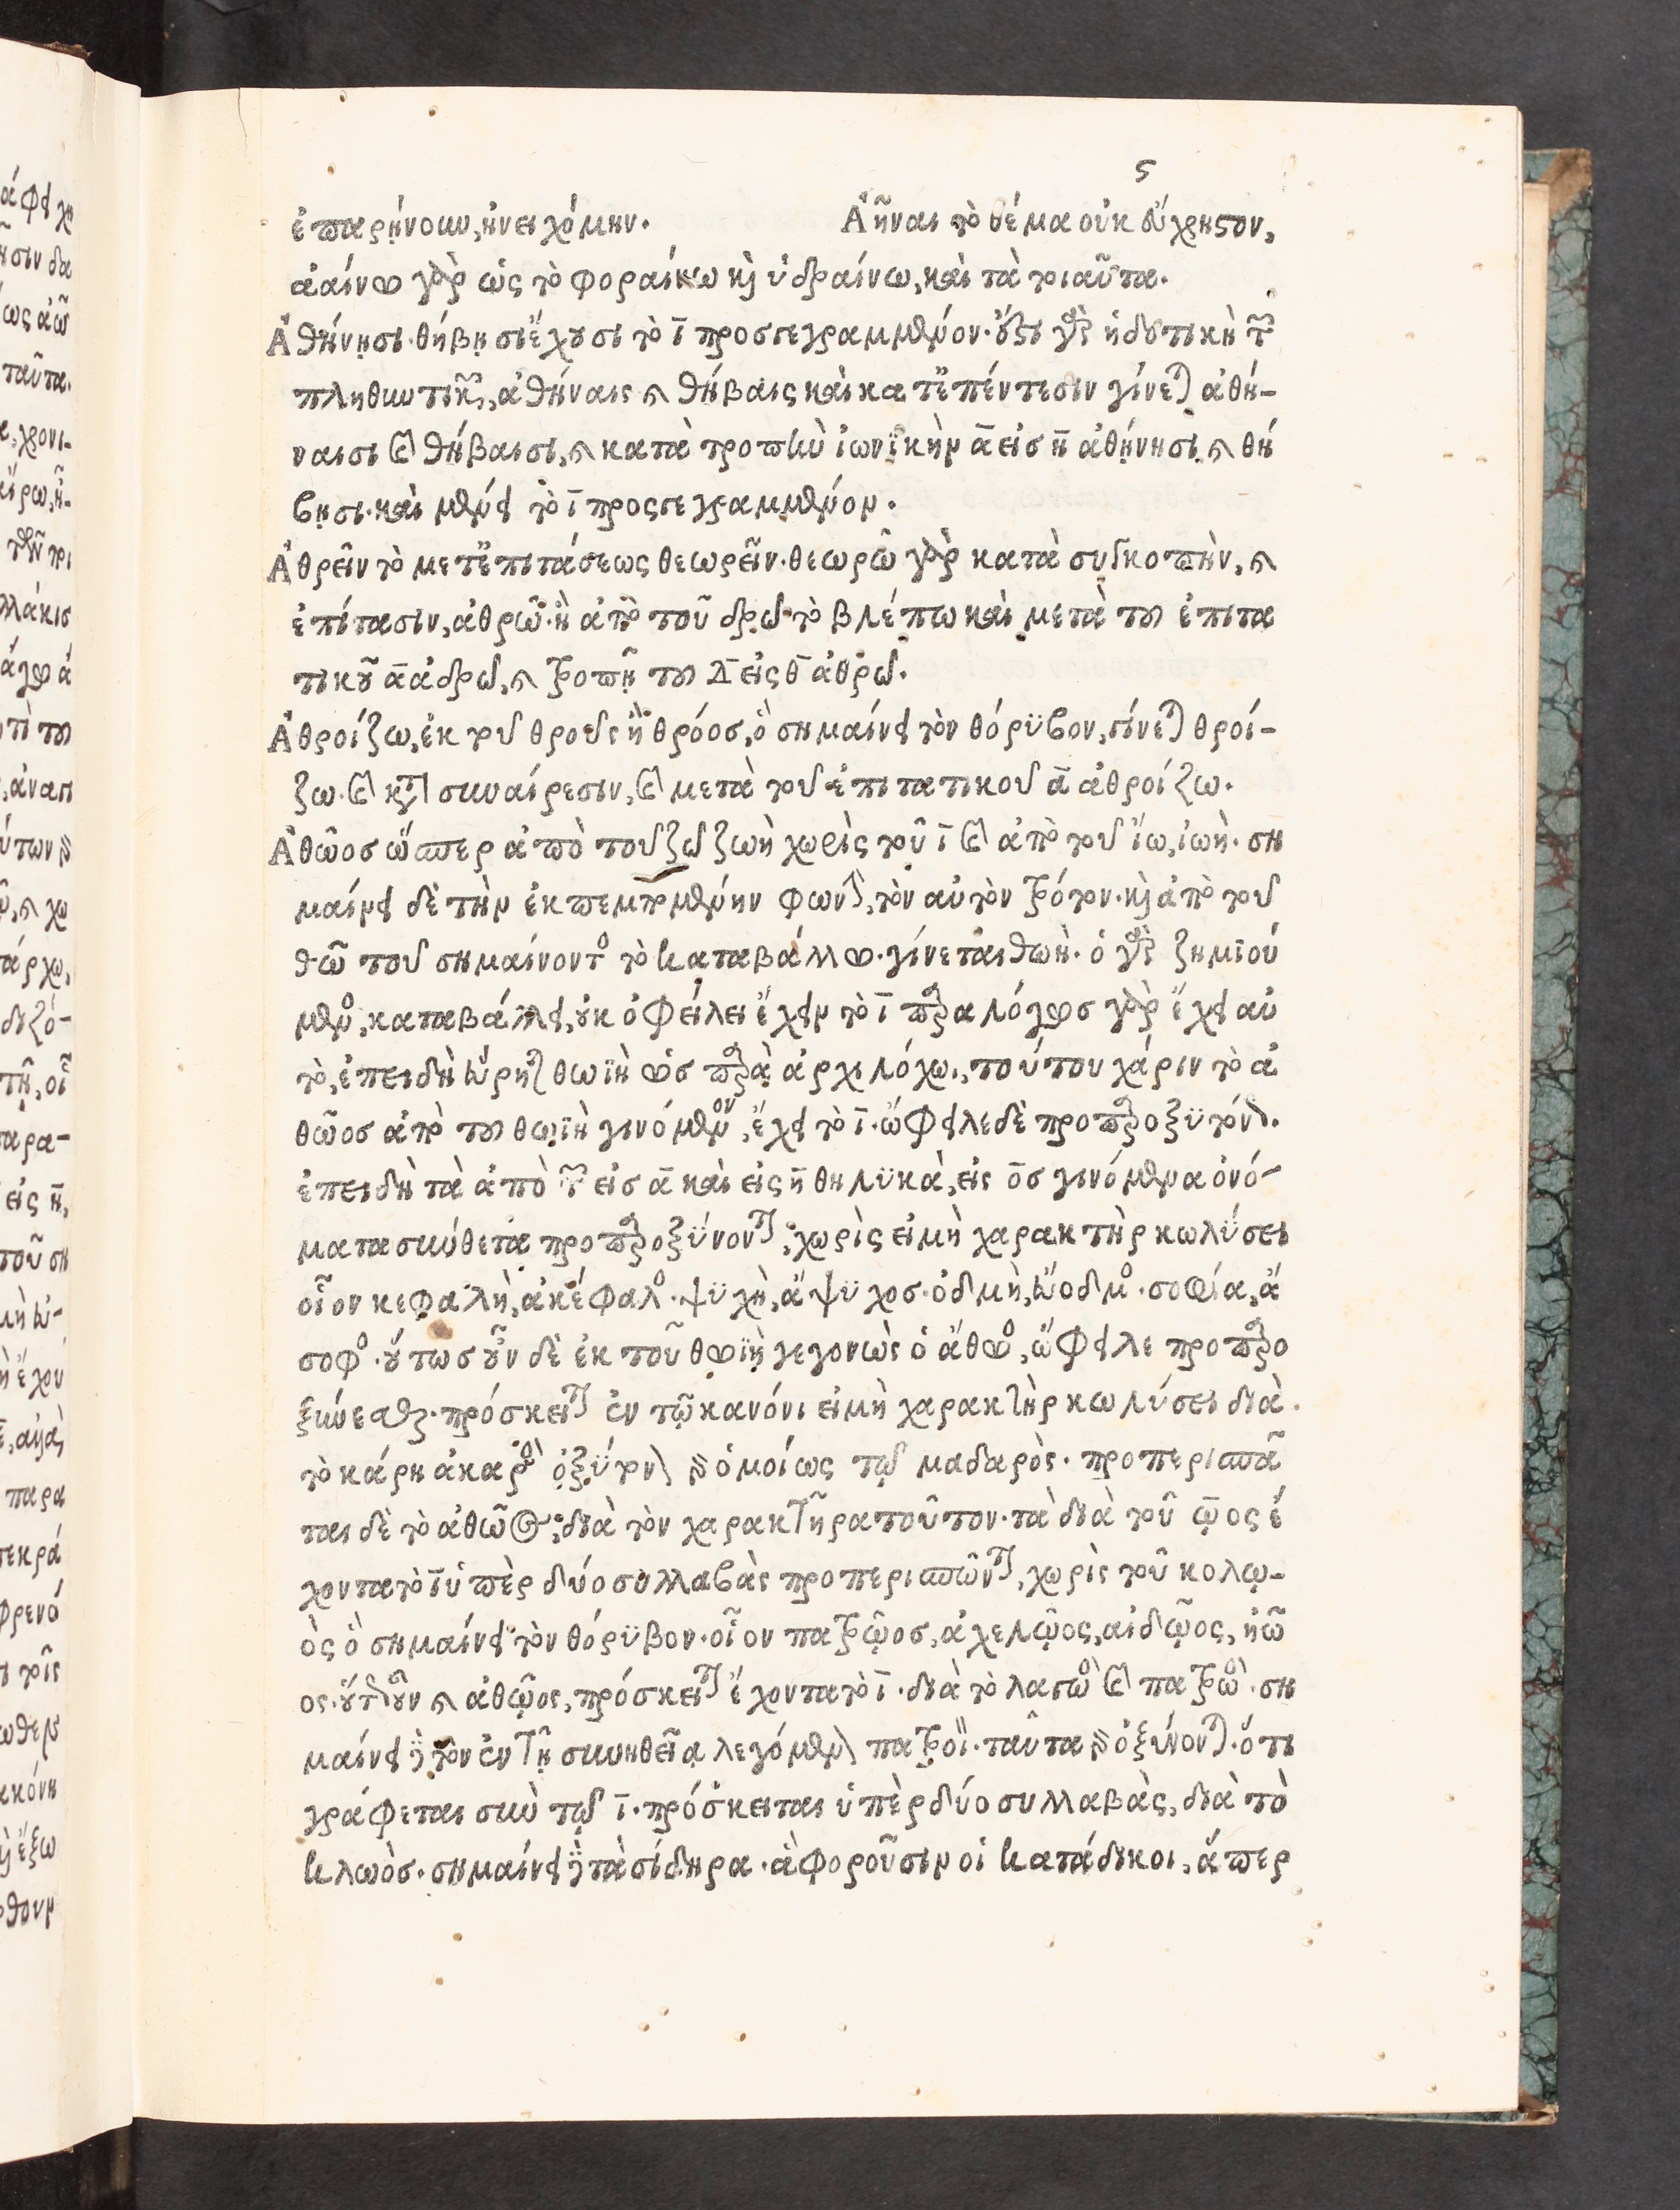 5
ἐπαρῄνουν, ἠνειχόμην. Ἀῆναι τὸ θέμα οὐκ εὔχρηστον,
ἀαίνω γὰρ ὡς τὸ φοραίνω καὶ ὑδραίνω, καὶ τὰ τοιαῦτα.
Ἀθήνῃσι. θήβῃσι ἔχουσι τὸ ῑ προσγεγραμμένον. ἔστι γὰρ ἡ δοτικὴ τῶν
πληθυντικῶν, ἀθήναις καὶ θήβαις καὶ κατ' ἐπέντεσιν γίνεται ἀθή-
ναισι καὶ θήβαισι, καὶ κατὰ τροπὴν ἰωνϊκὴν ᾱ εἰσ η̄ ἀθήνησι καὶ θή
βησι. καὶ μένει τὸ ῑ προςγεγραμμένον.
Ἀθρεῖν τὸ μετ' ἐπιτάσεως θεωρεῖν. θεωρῶ γὰρ κατὰ συγκοπὴν, καὶ
ἐπίτασιν, ἀθρῶ. ἢ ἀπὸ τοῦ δρῶ τὸ βλέπω καὶ μετὰ τοῦ ἐπιτα
τικοῦ ᾱ ἀδρῶ, καὶ τροπῇ τοῦ δ̄ εἰς θ̄ ἀθρῶ.
Ἀθροίζω, ἐκ τοῦ θροῦς ἢ θρόοσ, ὃ σημαίνει τὸν θόρϋβον, γίνεται θροί-
ζω. καὶ κατὰ συναίρεσιν, καὶ μετὰ τοῦ ἐπιτατικοῦ ᾱ ἀθροίζω.
Ἀθῶοσ ὥσπερ ἀπὸ τοῦ ζῶ ζωὴ χωρὶς τοῦ ῑ καὶ ἀπὸ τοῦ ἴω, ἰωὴ. ση
μαίνει δὲ τὴν ἐκπεμπομένην φωνὴν, τὸν αὐτὸν τρόπον. καὶ ἀπὸ τοῦ
θῶ τοῦ σημαίνοντος τὸ καταβάλλω. γίνεται θωὴ. ὁ γὰρ ζημϊού
μενος, καταβάλλει, οὐκ ὀφείλει ἔχειν τὸ ῑ παραλόγωσ γὰρ ἔχει αὐ
τὸ, ἐπειδὴ εὕρηται θωϊὴ ὡσ παρὰ ἀρχιλόχω, τούτου χάριν τὸ ἀ
θῶοσ ἀπὸ τοῦ θωϊὴ γινόμενον, ἔχει τὸ ῑ. ὤφειλε δὲ προπαροξϋτόνως.
ἐπειδὴ τὰ ἀπὸ τῶν εἰσ ᾱ καὶ εἰς η̄ θηλϋκὰ, εἰς ο̄σ γινόμενα ὀνό-
ματα σύνθετα προπαροξύνονται, χωρὶς εἰ μὴ χαρακτὴρ κωλύσει
οἷον κεφαλὴ, ἀκέφαλος. ψϋχὴ, ἄψϋχοσ. ὀδμὴ, εὔοδμος. σοφία, ἄ
σοφος. οὕτωσ οὖν δὲ ἐκ τοῦ θωϊὴ γεγονὼς ὁ ἄθωος, ὤφειλε προπαρο
ξύνεσθαι. πρόσκειται ἐν τῷ κανόνι εἰ μὴ χαρακτὴρ κωλύσει διὰ
τὸ κάρη ἀκαρὸς ὀξϋτόνως ὁμοίως τῷ μαδαρὸς. προπερισπᾶ
ται δὲ τὸ ἀθῶος, διὰ τὸν χαρακτῆρα τοῦτον. τὰ διὰ τοῦ ῳος ἔ
χοντα τὸ ῑ ὑπὲρ δύο συλλαβὰς προπερισπῶνται, χωρὶς τοῦ κολῳ-
ὸς ὃ σημαίνει τὸν θόρϋβον. οἷον πατρῷοσ, ἀχελῷος, αἰδῷος, ἠῶ
ος. οὕτως οὖν καὶ ἀθῷος, πρόσκειται ἔχοντα τὸ ῑ. διὰ τὸ λαγωὸς καὶ πατρωὸς. ση
μαίνει δὲ τὸν ἐν τῇ συνηθείᾳ λεγόμενον πατρωὸν. ταῦτα γὰρ ὀξύνονται. ὅτι
γράφεται σὺν τῷ ῑ. πρόσκειται ὑπὲρ δύο συλλαβὰς, διὰ τὸ
κλωὸσ. σημαίνει δὲ τὰ σίδηρα. ἃ φοροῦσιν οἱ κατάδικοι, ἅπερ